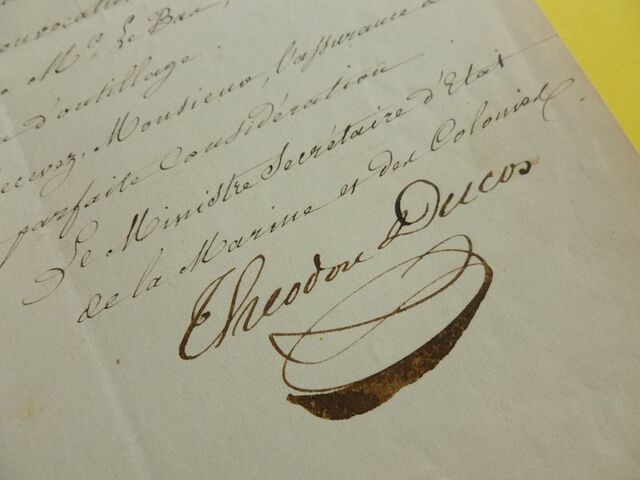 convocation
Mr. Le Bas,
d'outillage.
Recevez, Monsieur, l'assurance d
parfaite considération
Le Ministre Secrétaire d'Etat
de la Marine et des Colonies.
Theodore Ducos